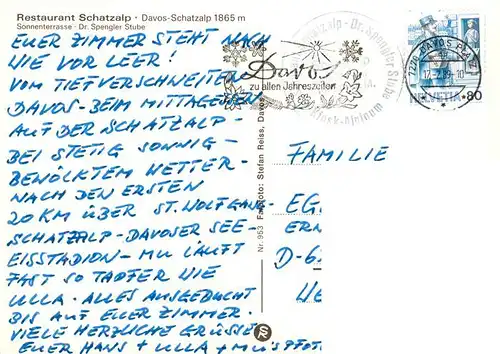 Restaurant Schatzalp · Davos-Schatzalp 1865 m
Sonnenterrasse · Dr. Spengler Stube
EUER ZIMMER STEHT NACH
WIE VOR LEER!
VOM TIEFVERSCHNEITEN
DAVOS - BEIM MITTAGESSEN
AUF DER SCHATZALP -
BEI STETIG SONNIG-
BEWÖLKTEM WETTER -
NACH DEN ERSTEN
20 KM ÜBER ST. WOLFGANG-
SCHATZALP - DAVOSER SEE -
EISSTADION - MU LÄUFT
FAST SO TAPFER WIE
ULLA. ALLES AUSGEBUCHT
BIS AUF EUER ZIMMER.
VIELE HERZLICHE GRÜSSE
EUER HANS + ULLA +
Nr. 953 Farbfoto: Stefan Reiss, Davos
Davos
zu allen Jahreszeiten
Schatzalp - Dr. Spengler Stube
Kiosk-Alpinum
7270 DAVOS PLATZ
HELVETIA 80
FAMILIE
EG
ER
D-6
WE